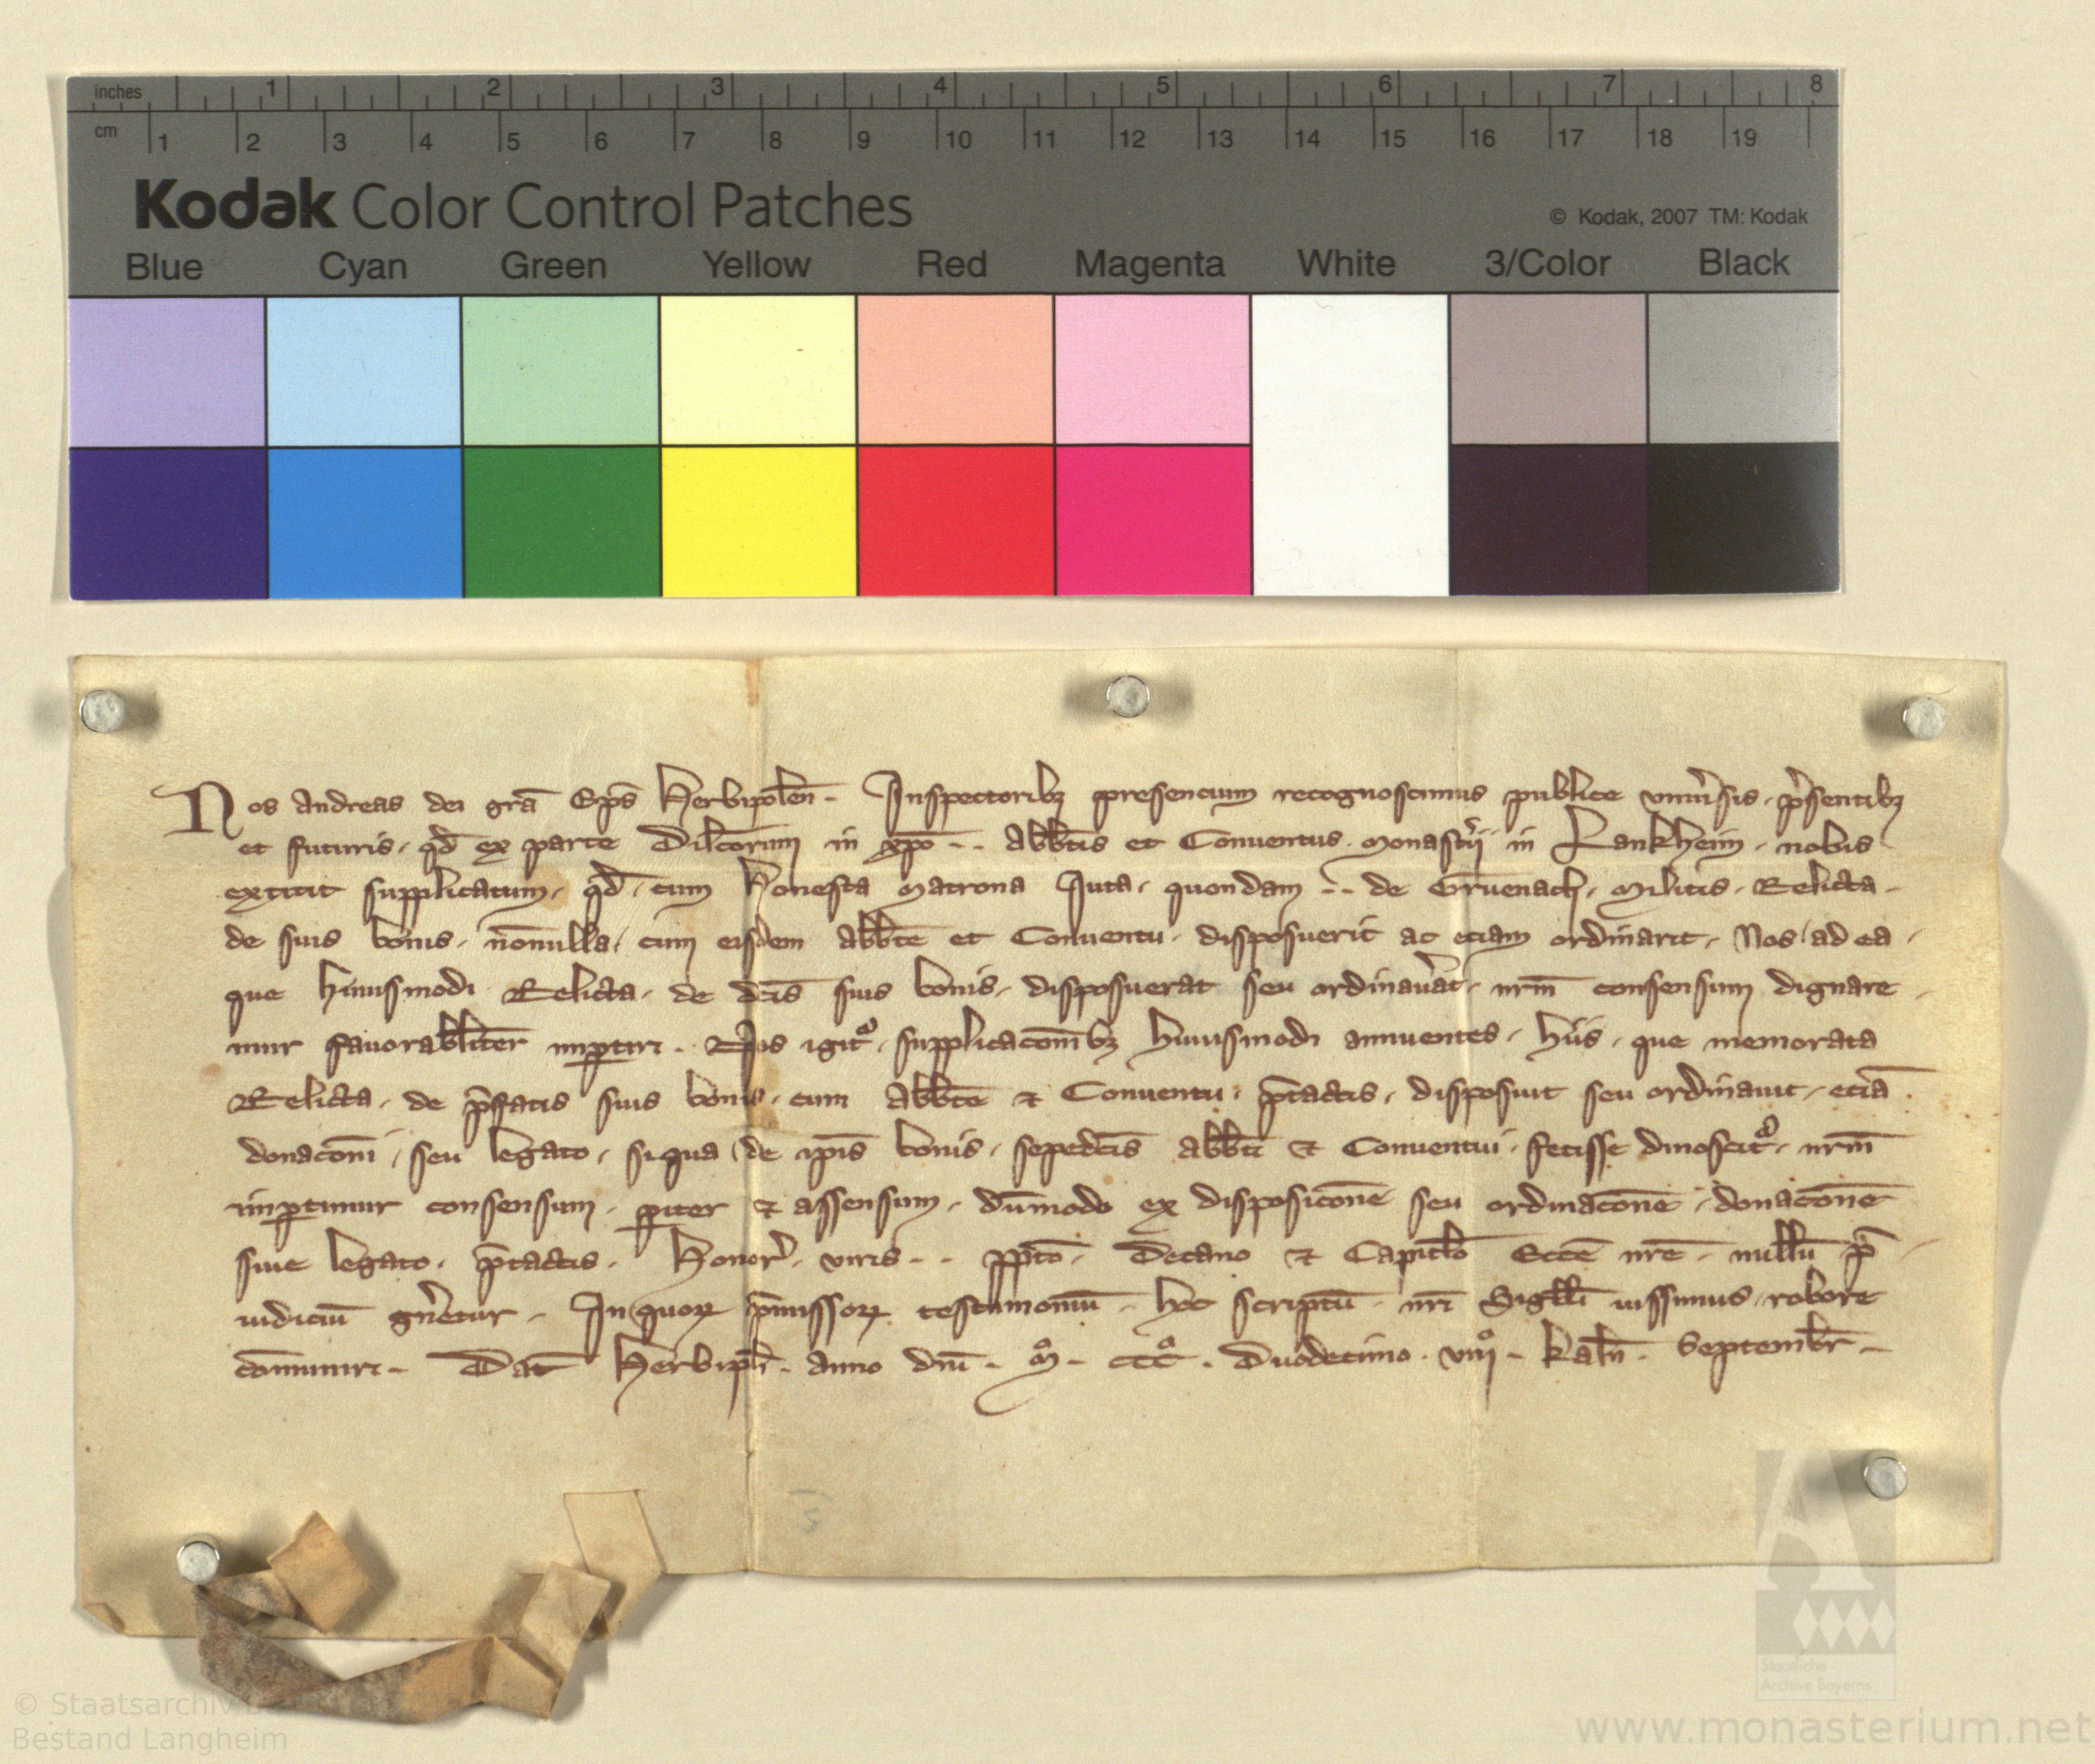 inches 1 2 3 4 5 6 7 8
cm 1 2 3 4 5 6 7 8 9 10 11 12 13 14 15 16 17 18 19
Kodak Color Control Patches
© Kodak, 2007 TM: Kodak
Blue Cyan Green Yellow Red Magenta White 3/Color Black
Nos Andreas dei grā Ep̄s Herbipoleñ. Inspectoribꝫ presencium recognoscimus publice vniu̾sis. p̾sentibꝫ
et futuris. qd̄ ex parte Dilc̄orum in xp̄o .. Abb̄tis et Conuentus. Monast̾ij in Lankheim. nobis
extitit supplicatum. qd̄. cum Honesta Matrona Juta. quondam .. de Gruenach. Militis. Relicta.
de suis bonis. nōnulla. cum eisdem Abb̄te et Conuentu. disposuerit ac etiam ordinarit. Nos ad ea.
que huiusmodi Relicta. de dc̄is suis bonis. disposuerat seu ordinau̾at. nr̄m consensum dignare
mur fauorabilit̄er imꝑtiri. Nos igit᷑. supplicac̄onibꝫ huiusmodi annuentes. hiis. que memorata
Relicta. de p̄fatis suis bonis. cum Abb̄te ⁊ Conuentu. p̄tactis. disposuit seu ordinauit. etiā.
donac̄oni. seu legato. siqua de ip̄is bonis. sepedc̄is Abb̄ti ⁊ Conuentui. fecisse dinoscit᷑. nr̄m
imꝑtimur consensum. ꝑiter ⁊ assensum. dūmodo ex disposic̄one seu ordinac̄one. donac̄one
siue legato. p̄tactis. Honor̾. viris .. pp̄to. Decano ⁊ Capitl̄o Ecc̄e nr̄e. nullū p̄
iudiciū gn̾etur. In quoꝝ p̄missoꝝ testimoniū. hoc scriptū. nr̄i Sigilli iussimus. robore
cōmuniri. Dat̄ Herbipl̄i. anno dn̄i. Mͦ. CCCͦ. Duodecimo. viijͦ. kaln̄. Septembr̄.
© Staatsarchiv
Bestand Langheim
Staatliche
Archive Bayerns
www.monasterium.net